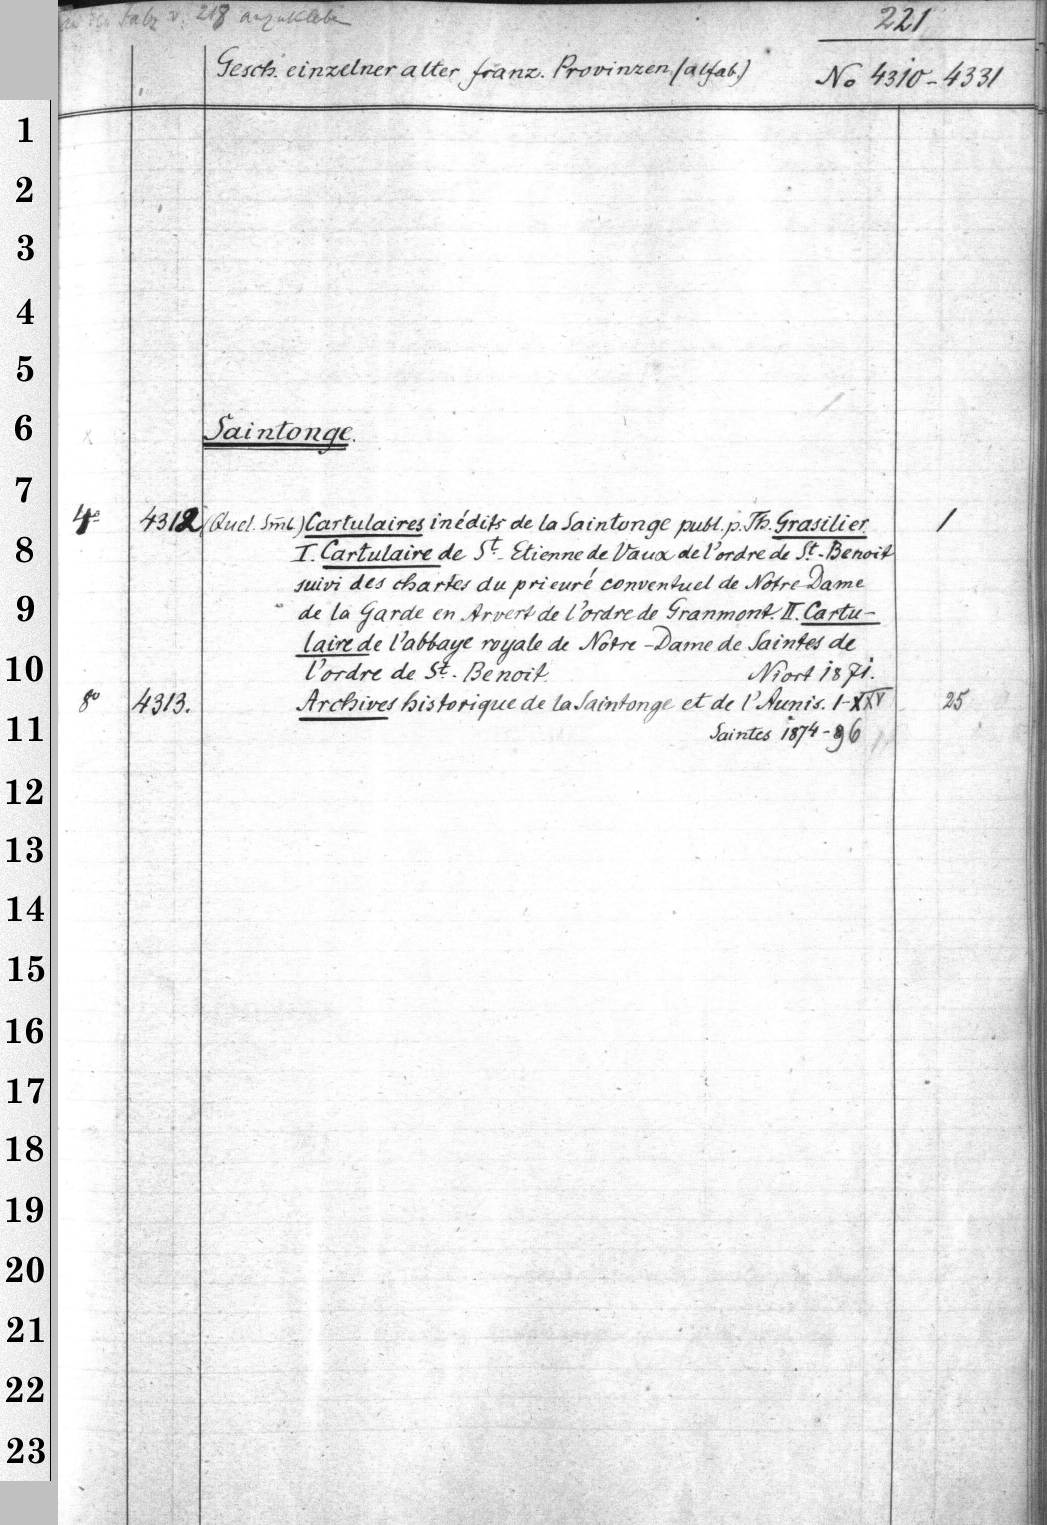 Falz v. 218 anzukleben
221
Gesch. einzelner alter franz. Provinzen (alfab.)
No 4310-4331
1
2
3
4
5
6
Saintonge.
7
4º 4312 (Quel. Sml.) Cartulaires inédits de la Saintonge publ. p. Th. Grasilier. 1
8
I. Cartulaire de St. Etienne de Vaux de l'ordre de St. Benoit
suivi des chartes du prieuré conventuel de Notre Dame
9
de la Garde en Arvert de l'ordre de Granmont. II. Cartu-
laire de l'abbaye royale de Notre-Dame de Saintes de
10
l'ordre de St. Benoit. Niort 1871.
8º 4313. Archives historique de la Saintonge et de l'Aunis. 1-XXV 25
11
Saintes 1874-96
12
13
14
15
16
17
18
19
20
21
22
23